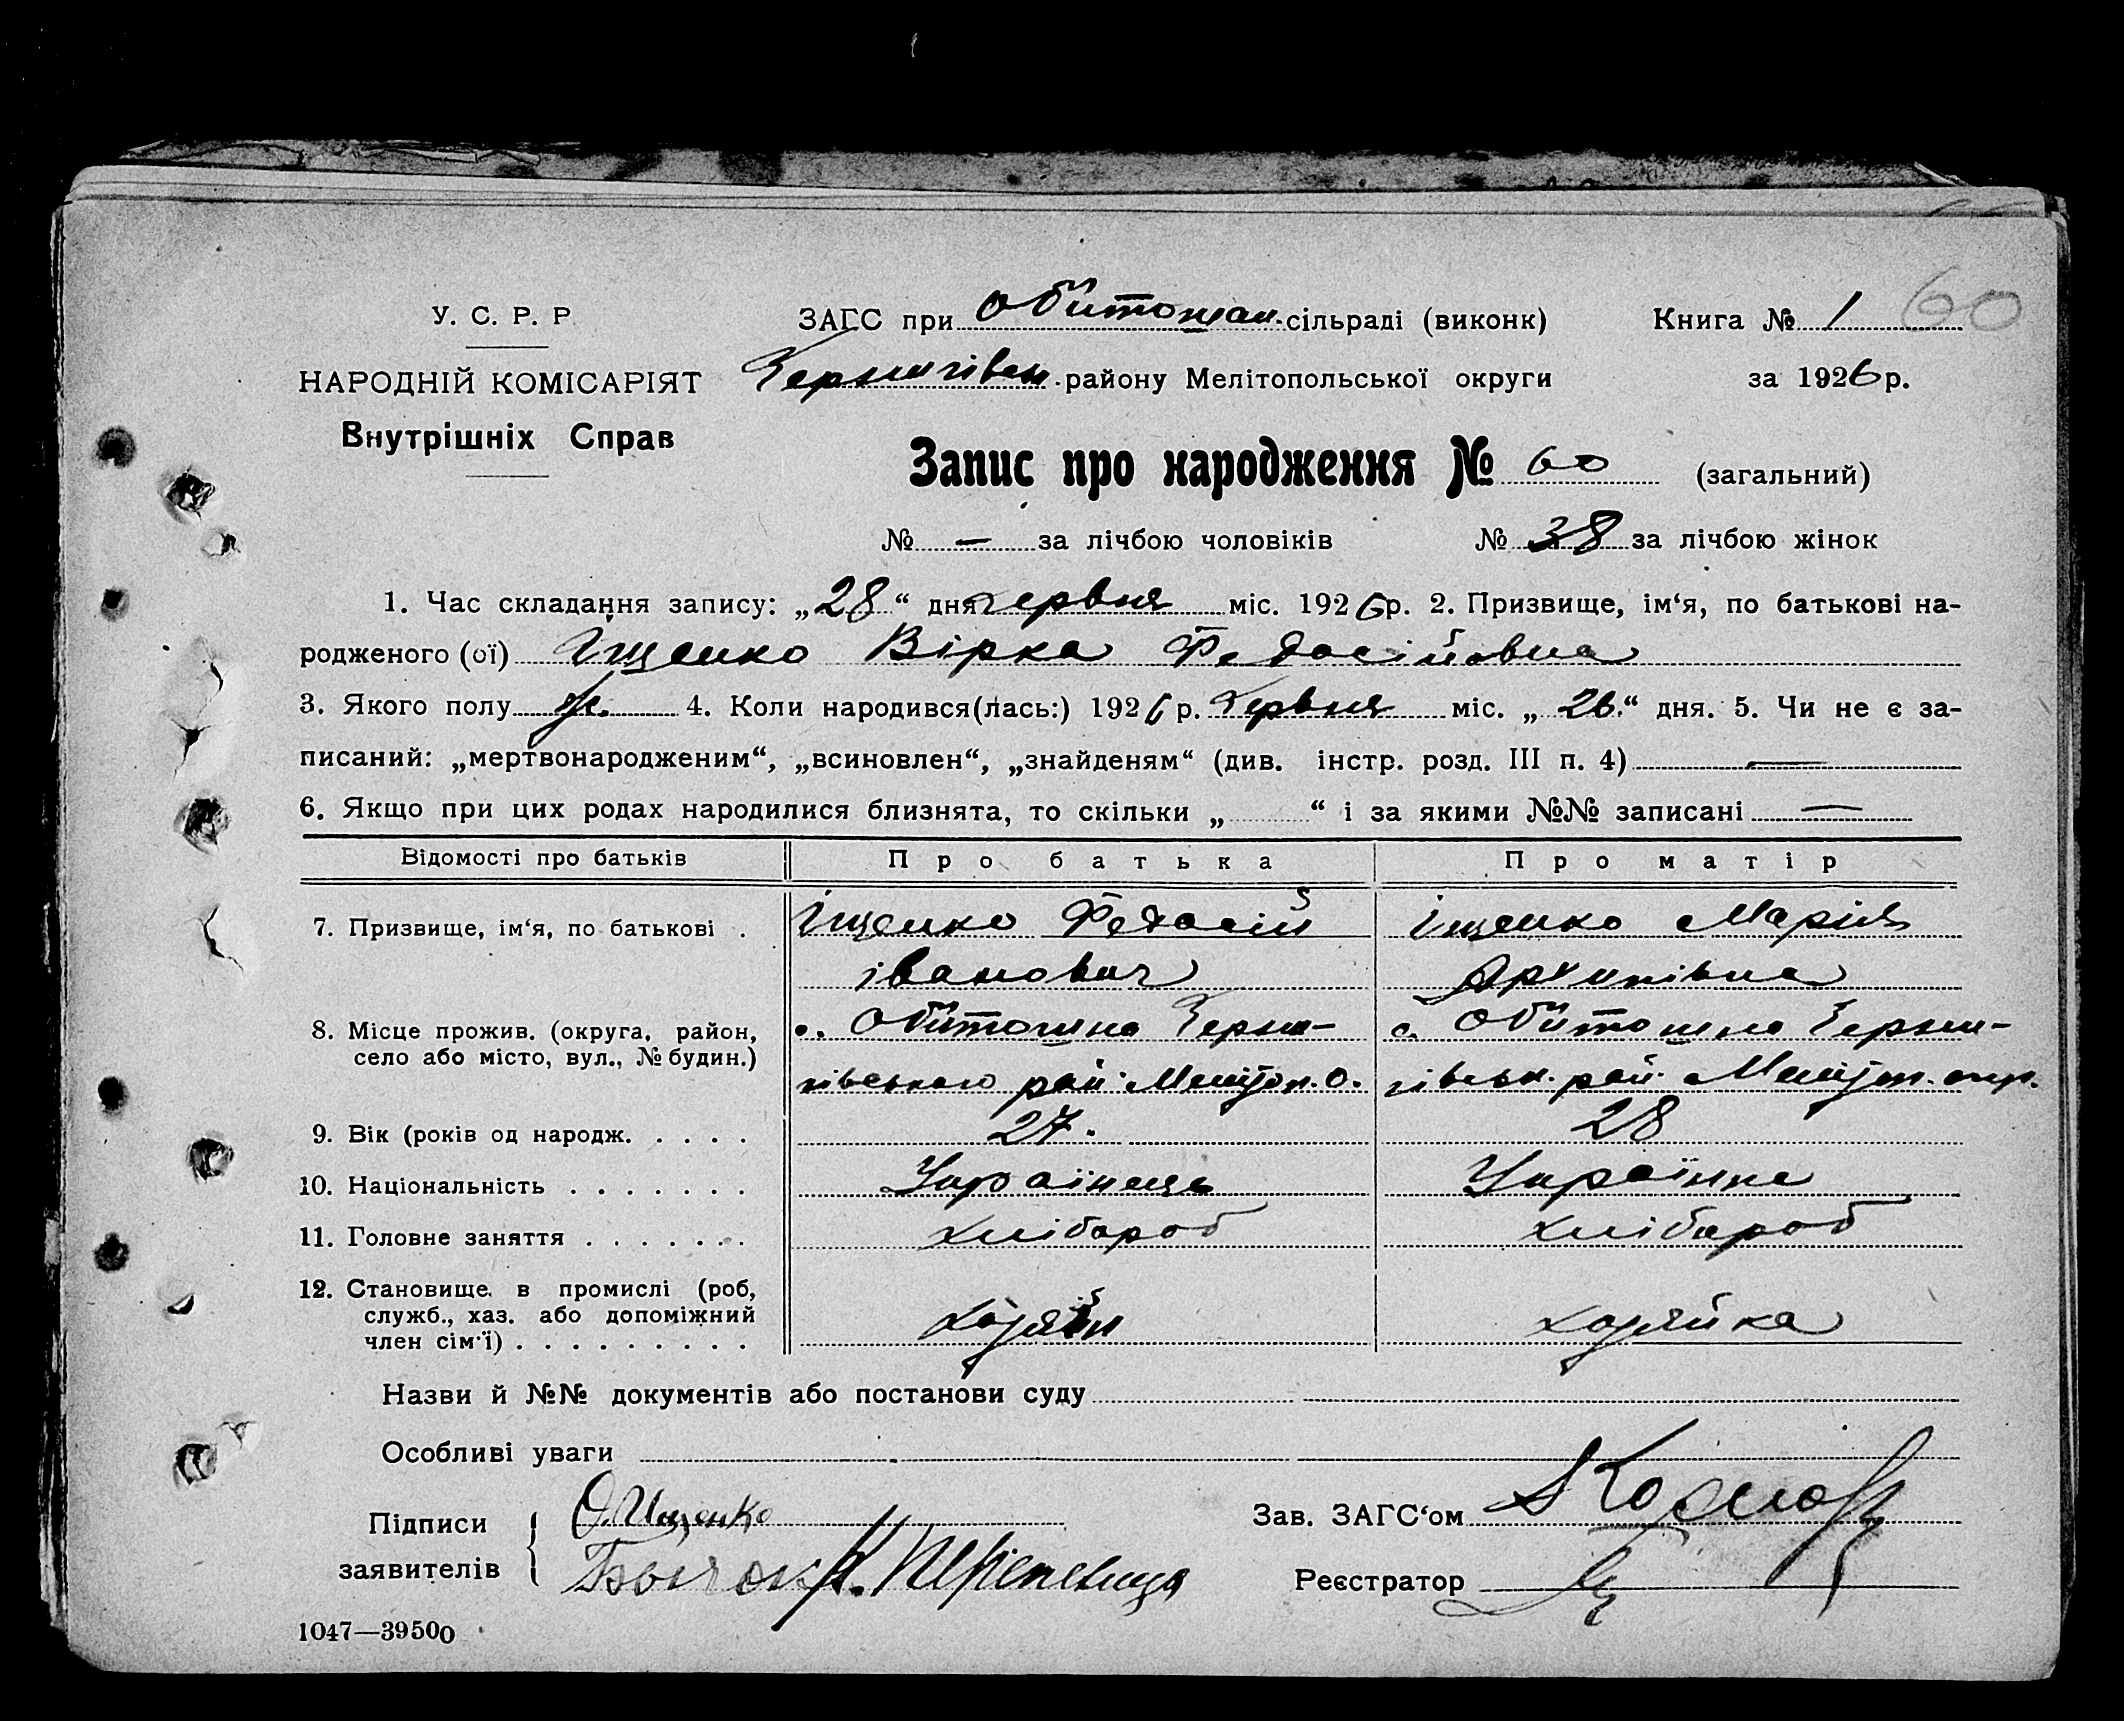 60
У. С. Р. Р
НАРОДНІЙ КОМІСАРІЯТ
Внутрішніх Справ
ЗАГС при Обиточан. сільраді (виконк)
Книга № 1
Чернигівськ. району Мелітопольської округи
за 1926 р.
Запис про народження № 60 (загальний)
№ — за лічбою чоловіків № 38 за лічбою жінок
1. Час складання запису: „28“ дня червня міс. 1926 р. 2. Призвище, ім‘я, по батькові на-
родженого (ої) Іщенко Вірка Федосійовна
3. Якого полу ж. 4. Коли народився(лась:) 1926 р. Червня міс. „26.“ дня. 5. Чи не є за-
писаний: „мертвонародженим“, „всиновлен“, „знайденям“ (див. інстр. розд. III п. 4) —
6. Якщо при цих родах народилися близнята, то скільки „ “ і за якими №№ записані —
Відомості про батьків Про батька Про матір
7. Призвище, ім‘я, по батькові . Іщенко Федосій Іщенко Марія
іванович Архипівна
8. Місце прожив. (округа, район, с. Обиточна Черни- с. Обиточна Черни-
село або місто, вул., № будин.)
гівського рай. Меліт. о. гівськ. рай. Меліт. окр.
9. Вік (років од народж. . . . . 27. 28
10. Національність . . . . . . . Українець Українка
11. Головне заняття . . . . . . . хлібороб хлібороб
12. Становище. в промислі (роб,
служб., хаз. або допоміжний хазяїн хазяйка
член сім‘ї) . . . . . . . . .
Назви й №№ документів або постанови суду
Особливі уваги
Підписи
заявителів
О. Ищенко
Зав. ЗАГС‘ом
Реєстратор
1047—39500